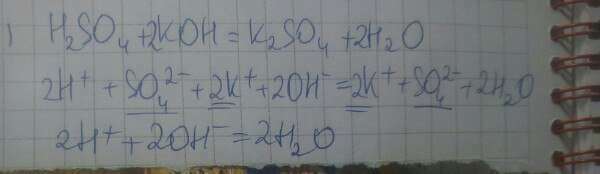 1 H₂SO₄ + 2KOH = K₂SO₄ + 2H₂O
2H⁺ + SO₄²⁻ + 2K⁺ + 2OH⁻ = 2K⁺ + SO₄²⁻ + 2H₂O
2H⁺ + 2OH⁻ = 2H₂O